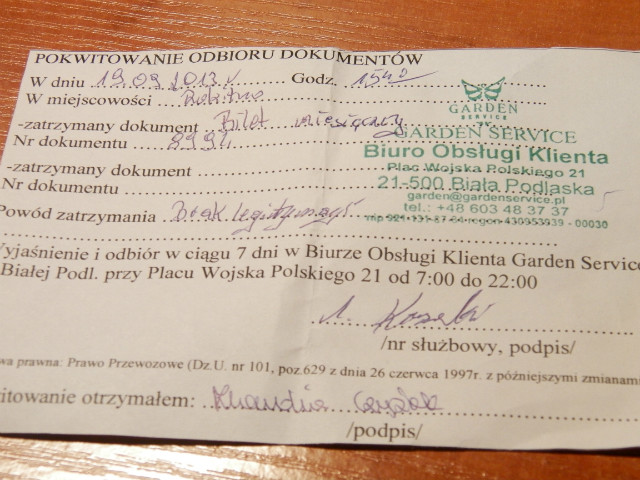 POKWITOWANIE ODBIORU DOKUMENTÓW
W dniu 19.09.2013 r. Godz. 15 40
W miejscowości Rokitno
-zatrzymany dokument Bilet miesięczny
Nr dokumentu
-zatrzymany dokument
Nr dokumentu
Powód zatrzymania Brak legitymacji
GARDEN
SERVICE
GARDEN SERVICE
Biuro Obsługi Klienta
Plac Wojska Polskiego 21
21-500 Biała Podlaska
garden@gardenservice.pl
tel.: +48 603 48 37 37
regon - 00030
yjaśnienie i odbiór w ciągu 7 dni w Biurze Obsługi Klienta Garden Service
Białej Podl. przy Placu Wojska Polskiego 21 od 7:00 do 22:00
/nr służbowy, podpis/
wa prawna: Prawo Przewozowe (Dz.U. nr 101, poz.629 z dnia 26 czerwca 1997r. z późniejszymi zmianami
itowanie otrzymałem: Klaudia
/podpis/